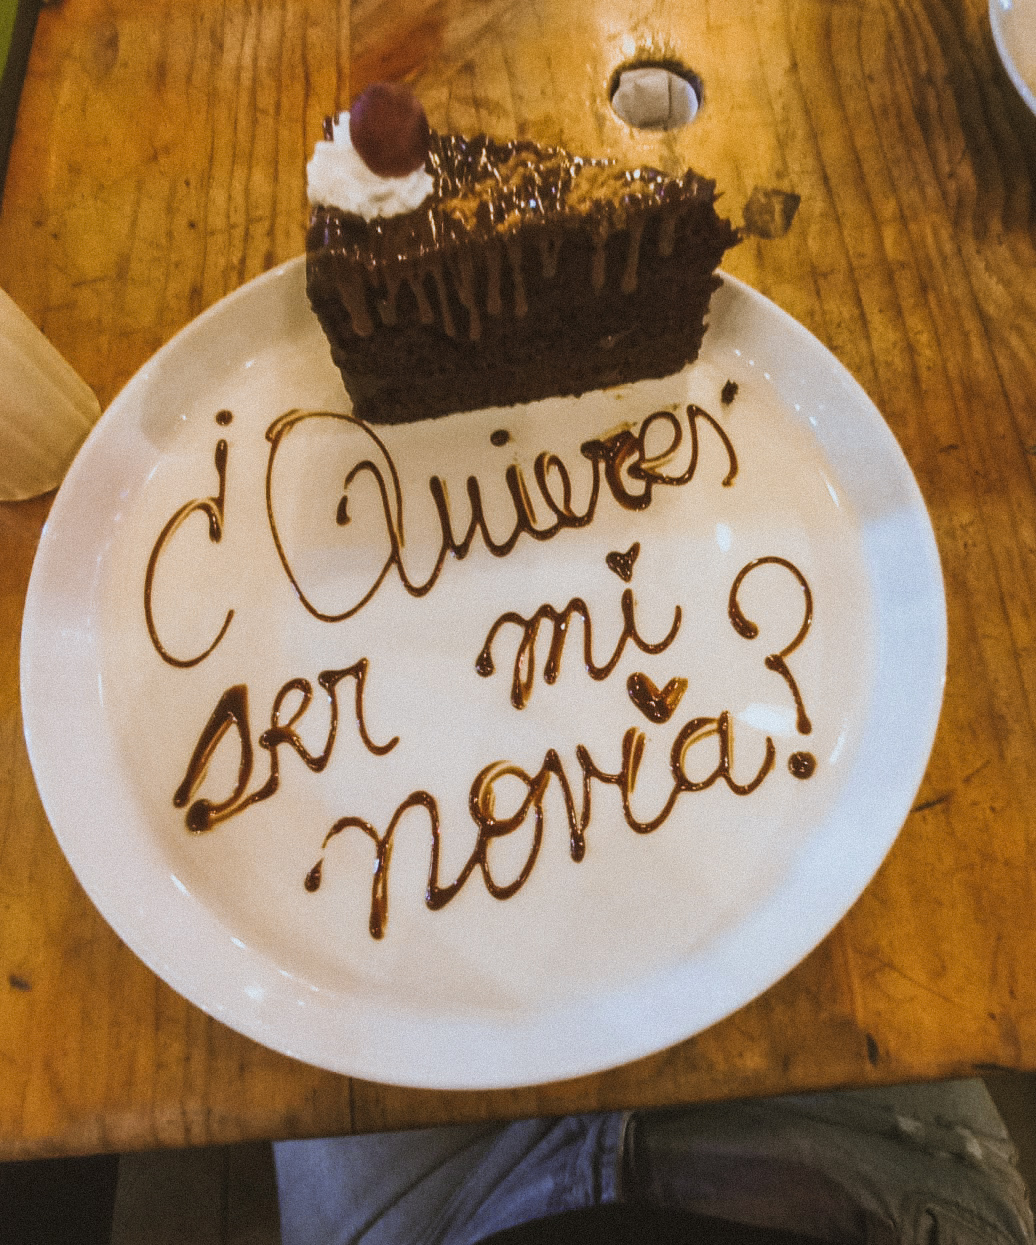 ¿Quieres
ser mi
novia?